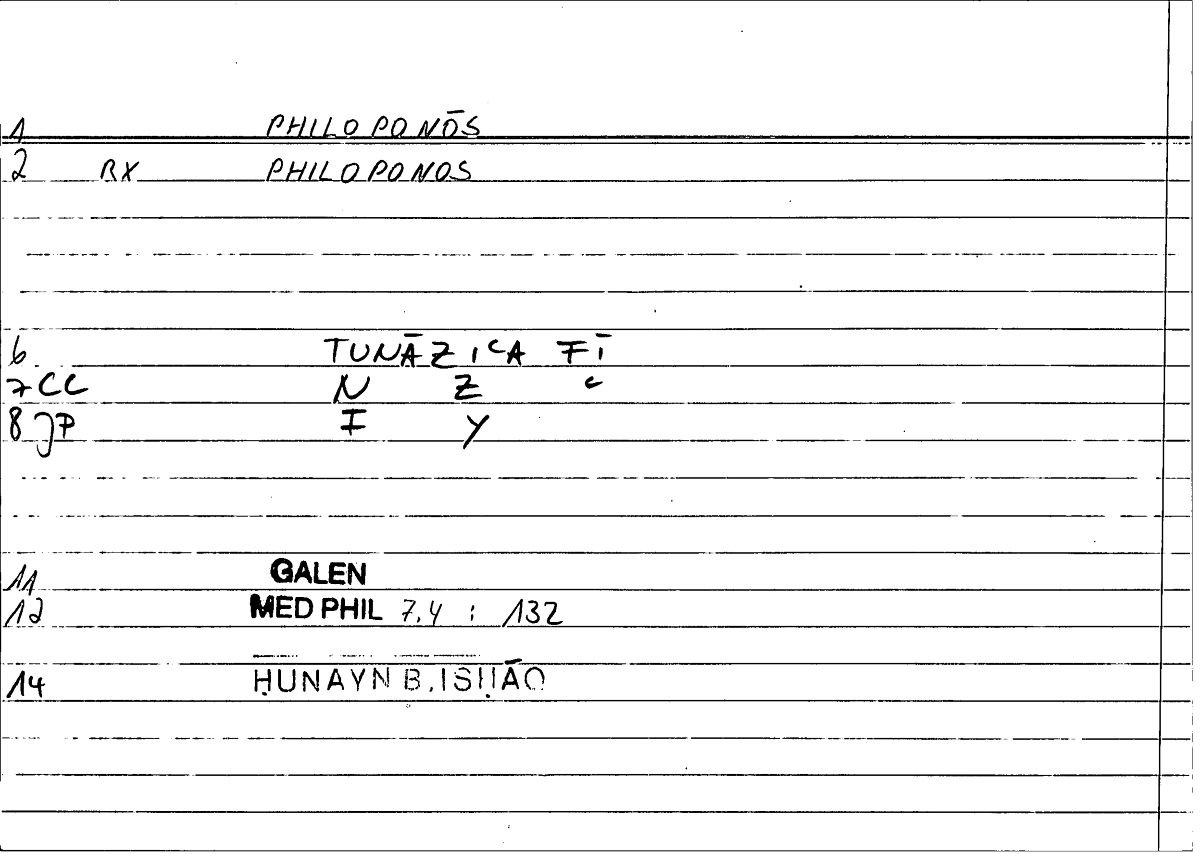 1 PHILOPONŌS
2 RX PHILOPONOS
6 TUNĀZIᶜA FĪ
7 CC N Z ᶜ
8 JP I Y
11 GALEN
12 MED PHIL 7.4 : 132
14 ḤUNAYN B. ISḤĀQ